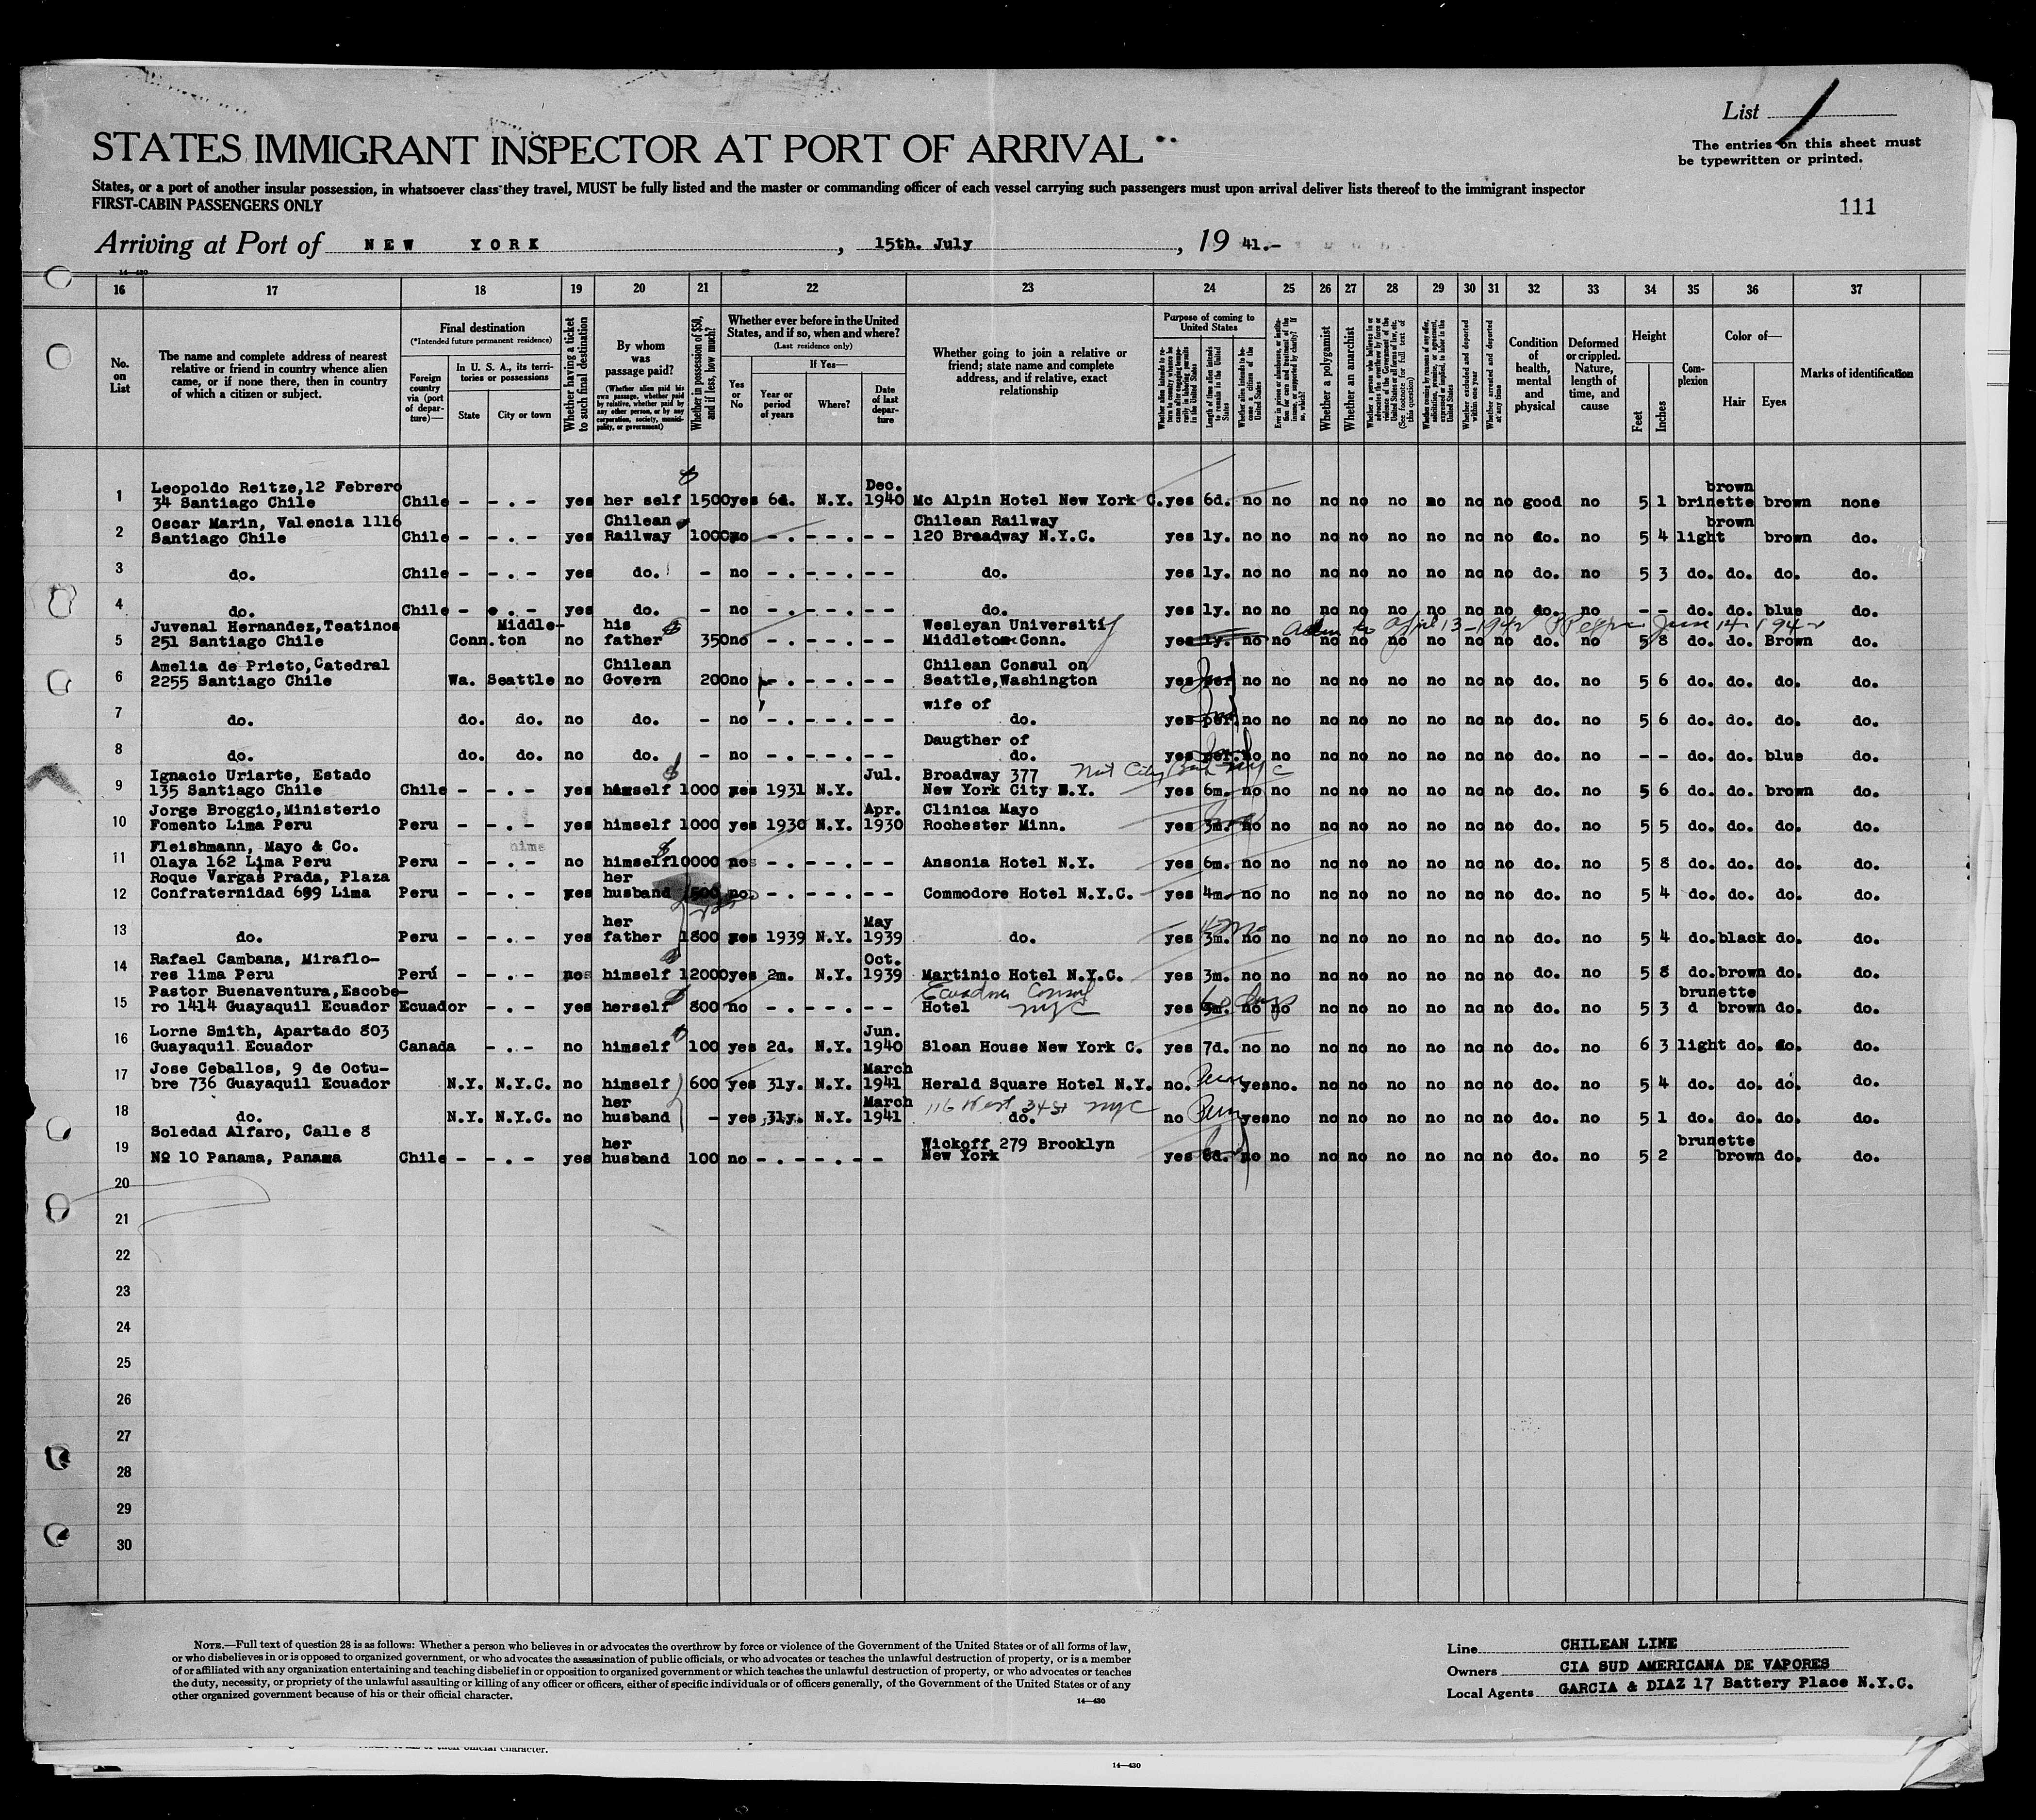 List 1
The entries on this sheet must
be typewritten or printed.
STATES IMMIGRANT INSPECTOR AT PORT OF ARRIVAL
States, or a port of another insular possession, in whatsoever class they travel, MUST be fully listed and the master or commanding officer of each vessel carrying such passengers must upon arrival deliver lists thereof to the immigrant inspector
FIRST-CABIN PASSENGERS ONLY
111
Arriving at Port of NEW YORK, 15th. July, 19 41.-
14-430
16 17 18 19 20 21 22 23 24 25 26 27 28 29 30 31 32 33 34 35 36 37
No. on List
The name and complete address of nearest
relative or friend in country whence alien
came, or if none there, then in country
of which a citizen or subject.
Final destination
(*Intended future permanent residence)
Foreign country via (port of departure)—
In U. S. A., its territories or possessions
State
City or town
Whether having a ticket to such final destination
By whom was passage paid?
(Whether alien paid his own passage, whether paid by relative, whether paid by any other person, or by any corporation, society, municipality, or government)
Whether in possession of $50, and if less, how much?
Whether ever before in the United States, and if so, when and where?
(Last residence only)
Yes or No
If Yes—
Year or period of years
Where?
Date of last departure
Whether going to join a relative or
friend; state name and complete
address, and if relative, exact
relationship
Purpose of coming to United States
Length of time alien intends to remain in the United States
Whether alien intends to become a citizen of the United States
Whether a polygamist
Whether an anarchist
(See footnote for full text of this question)
Whether excluded and deported within one year
Whether arrested and deported at any time
Condition of health, mental and physical
Deformed or crippled. Nature, length of time, and cause
Height
Feet
Inches
Complexion
Color of—
Hair
Eyes
Marks of identification
1 Leopoldo Reitze,12 Febrero Dec. brown
34 Santiago Chile Chile - - . - yes her self 1500 yes 6d. N.Y. 1940 Mc Alpin Hotel New York C. yes 6d. no no no no no no no no good no 5 1 brinette brown none
2 Oscar Marin, Valencia 1116 Chilean Chilean Railway brown
Santiago Chile Chile - - . - yes Railway 1000 no - . - - . - - 120 Broadway N.Y.C. yes 1y. no no no no no no no no do. no 5 4 light brown do.
3 do. Chile - - . - yes do. - no - . - - . - - do. yes 1y. no no no no no no no no do. no 5 3 do. do. do. do.
4 do. Chile - - . - yes do. - no - . - - . - - do. yes 1y. no no no no no no no no do. no - - do. do. blue do.
5 Juvenal Hernandez,Teatinos Middle- his Wesleyan University April 13-1942 June 14-1942
251 Santiago Chile Conn. ton no father 350 no - . - - . - - Middletom Conn. yes 1y. no no no no no no no no do. no 5 8 do. do. Brown do.
6 Amelia de Prieto,Catedral Chilean Chilean Consul on
2255 Santiago Chile Wa. Seattle no Govern 200 no - . - - . - - Seattle,Washington yes per. no no no no no no no no do. no 5 6 do. do. do. do.
7 wife of
do. do. do. no do. - no - . - - . - - do. yes per. no no no no no no no no do. no 5 6 do. do. do. do.
8 Daugther of
do. do. do. no do. - no - . - - . - - do. yes per. no no no no no no no no do. no - - do. do. blue do.
9 Ignacio Uriarte, Estado Jul. Broadway 377 Nat City Bank NYC
135 Santiago Chile Chile - - . - yes himself 1000 yes 1931 N.Y. New York City N.Y. yes 6m. no no no no no no no no do. no 5 6 do. do. brown do.
10 Jorge Broggio,Ministerio Apr. Clinica Mayo
Fomento Lima Peru Peru - - . - yes himself 1000 yes 1930 N.Y. 1930 Rochester Minn. yes 3m. no no no no no no no no do. no 5 5 do. do. do. do.
11 Fleishmann, Mayo & Co.
Olaya 162 Lima Peru Peru - - . - no himself 10000 no - . - - . - - Ansonia Hotel N.Y. yes 6m. no no no no no no no no do. no 5 8 do. do. do. do.
12 Roque Vargas Prada, Plaza her
Confraternidad 699 Lima Peru - - . - yes husband 500 no. - . - - . - - Commodore Hotel N.Y.C. yes 4m. no no no no no no no no do. no 5 4 do. do. do. do.
13 her May
do. Peru - - . - yes father 1800 yes 1939 N.Y. 1939 do. yes 3m. no no no no no no no no do. no 5 4 do. black do. do.
14 Rafael Cambana, Miraflo- Oct.
res lima Peru Perú - - . - no himself 12000 yes 2m. N.Y. 1939 Martinic Hotel N.Y.C. yes 3m. no no no no no no no no do. no 5 8 do. brown do. do.
15 Pastor Buenaventura,Escobe- Ecuador Consul 60 days brunette
ro 1414 Guayaquil Ecuador Ecuador - - . - yes herself 800 no - . - - . - - Hotel NYC yes no no no no no no no no do. no 5 3 d brown do. do.
16 Lorne Smith, Apartado 803 Jun.
Guayaquil Ecuador Canada - . - no himself 100 yes 2d. N.Y. 1940 Sloan House New York C. yes 7d. no no no no no no no no do. no 6 3 light do. do. do.
17 Jose Ceballos, 9 de Octu- March
bre 736 Guayaquil Ecuador N.Y. N.Y.C. no himself 600 yes 31y. N.Y. 1941 Herald Square Hotel N.Y. no. Perm yes no. no no no no no no do. no 5 4 do. do. do. do.
18 her March 116 West 34 St NYC
do. N.Y. N.Y.C. no husband - yes 31y. N.Y. 1941 do. no Perm yes no no no no no no no do. no 5 1 do. do. do. do.
Soledad Alfaro, Calle 8
19 her Wickoff 279 Brooklyn brunette
№ 10 Panama, Panama Chile - - . - yes husband 100 no - . - . - - New York yes 8d. no no no no no no no no do. no 5 2 brown do. do.
20
21
22
23
24
25
26
27
28
29
30
NOTE.—Full text of question 28 is as follows: Whether a person who believes in or advocates the overthrow by force or violence of the Government of the United States or of all forms of law,
or who disbelieves in or is opposed to organized government, or who advocates the assassination of public officials, or who advocates or teaches the unlawful destruction of property, or is a member
of or affiliated with any organization entertaining and teaching disbelief in or opposition to organized government or which teaches the unlawful destruction of property, or who advocates or teaches
the duty, necessity, or propriety of the unlawful assaulting or killing of any officer or officers, either of specific individuals or of officers generally, of the Government of the United States or of any
other organized government because of his or their official character.
14—430
Line CHILEAN LINE
Owners CIA SUD AMERICANA DE VAPORES
Local Agents GARCIA & DIAZ 17 Battery Place N.Y.C.
their official character.
14—430